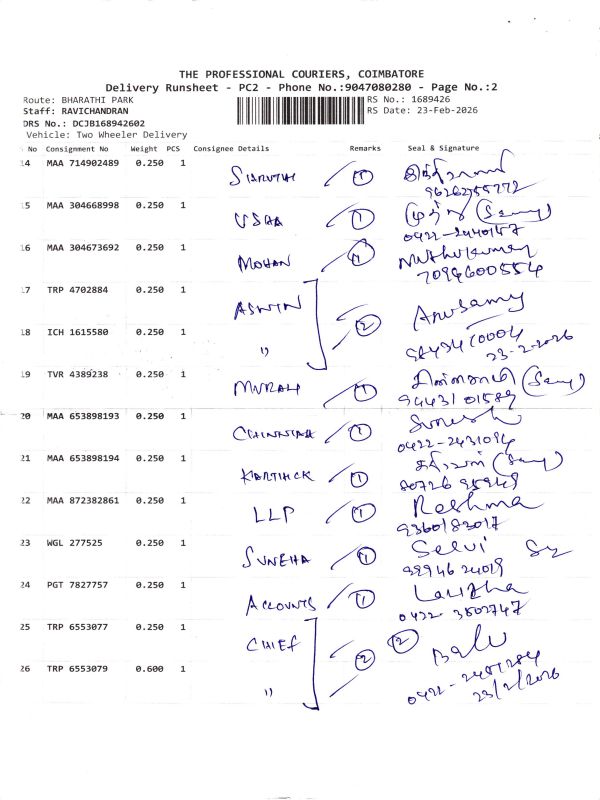 THE PROFESSIONAL COURIERS, COIMBATORE
Delivery Runsheet - PC2 - Phone No.:9047080280 - Page No.:2
Route: BHARATHI PARK
RS No.: 1689426
Staff: RAVICHANDRAN
RS Date: 23-Feb-2026
DRS No.: DCJB168942602
Vehicle: Two Wheeler Delivery
No Consignment No Weight PCS Consignee Details Remarks Seal & Signature
14 MAA 714902489 0.250 1 1
15 MAA 304668998 0.250 1 USHA 1 (Samy)
0422-2440157
16 MAA 304673692 0.250 1 MOHAN 1 Muthukumar
7096600554
17 TRP 4702884 0.250 1 ASWIN 2 Arusamy
18 ICH 1615580 0.250 1 "
23-2-2026
19 TVR 4389238 0.250 1 MURALI 1 (Samy)
94431 01589
20 MAA 653898193 0.250 1 CHINNIAH 1 Suresh
0422-2431094
21 MAA 653898194 0.250 1 KARTHICK 1 கதிர்வேல் (Samy)
80726 95949
22 MAA 872382861 0.250 1 LLP 1 Reshma
9360183017
23 WGL 277525 0.250 1 SUNEHA 1 Selvi
99946 24019
24 PGT 7827757 0.250 1 ACCOUNTS 1
0422-3502747
25 TRP 6553077 0.250 1 CHIEF 2 2 Balu
26 TRP 6553079 0.600 1 "
23/2/2026